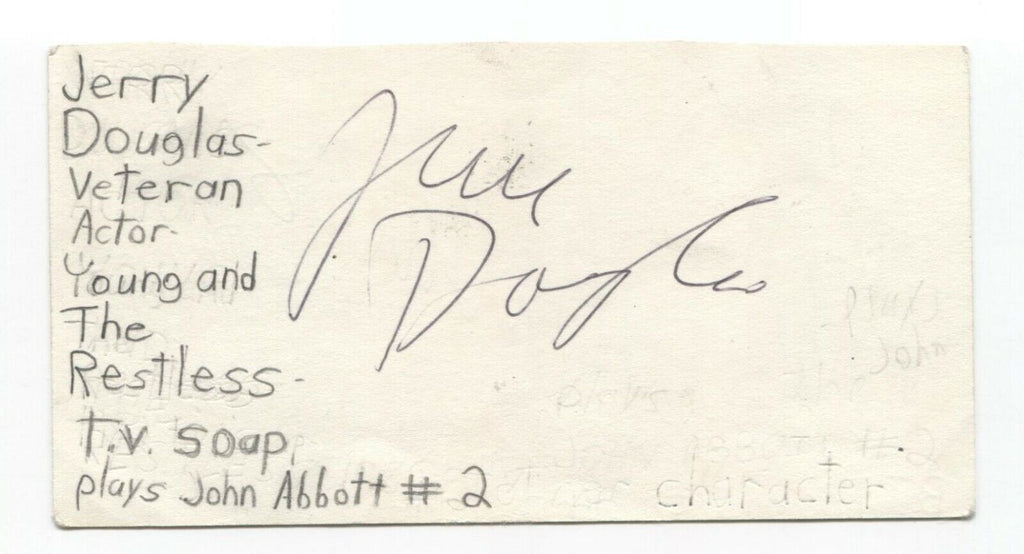 Jerry
Douglas-
Veteran
Actor-
Young and
The
Restless-
T.V. soap,
plays John Abbott # 2
character
Jerry
Douglas
plays
John